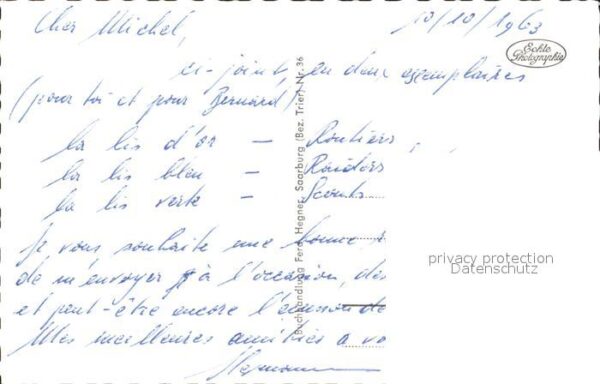 Cher Michel, 10/10/1963
Echte Photographie
ci-joint, en deux exemplaires
(pour toi et pour Bernard)
la lis d'or — Routiers
la lis bleu — Raiders
la lis verte — Scouts
Je vous souhaite une bonne
de m'envoyer à l'occasion, des
et peut-être encore l'écusson de
Mes meilleures amitiés à vo
Buchhandlung Ferd. Hegner, Saarburg (Bez. Trier) Nr. 36
privacy protection
Datenschutz